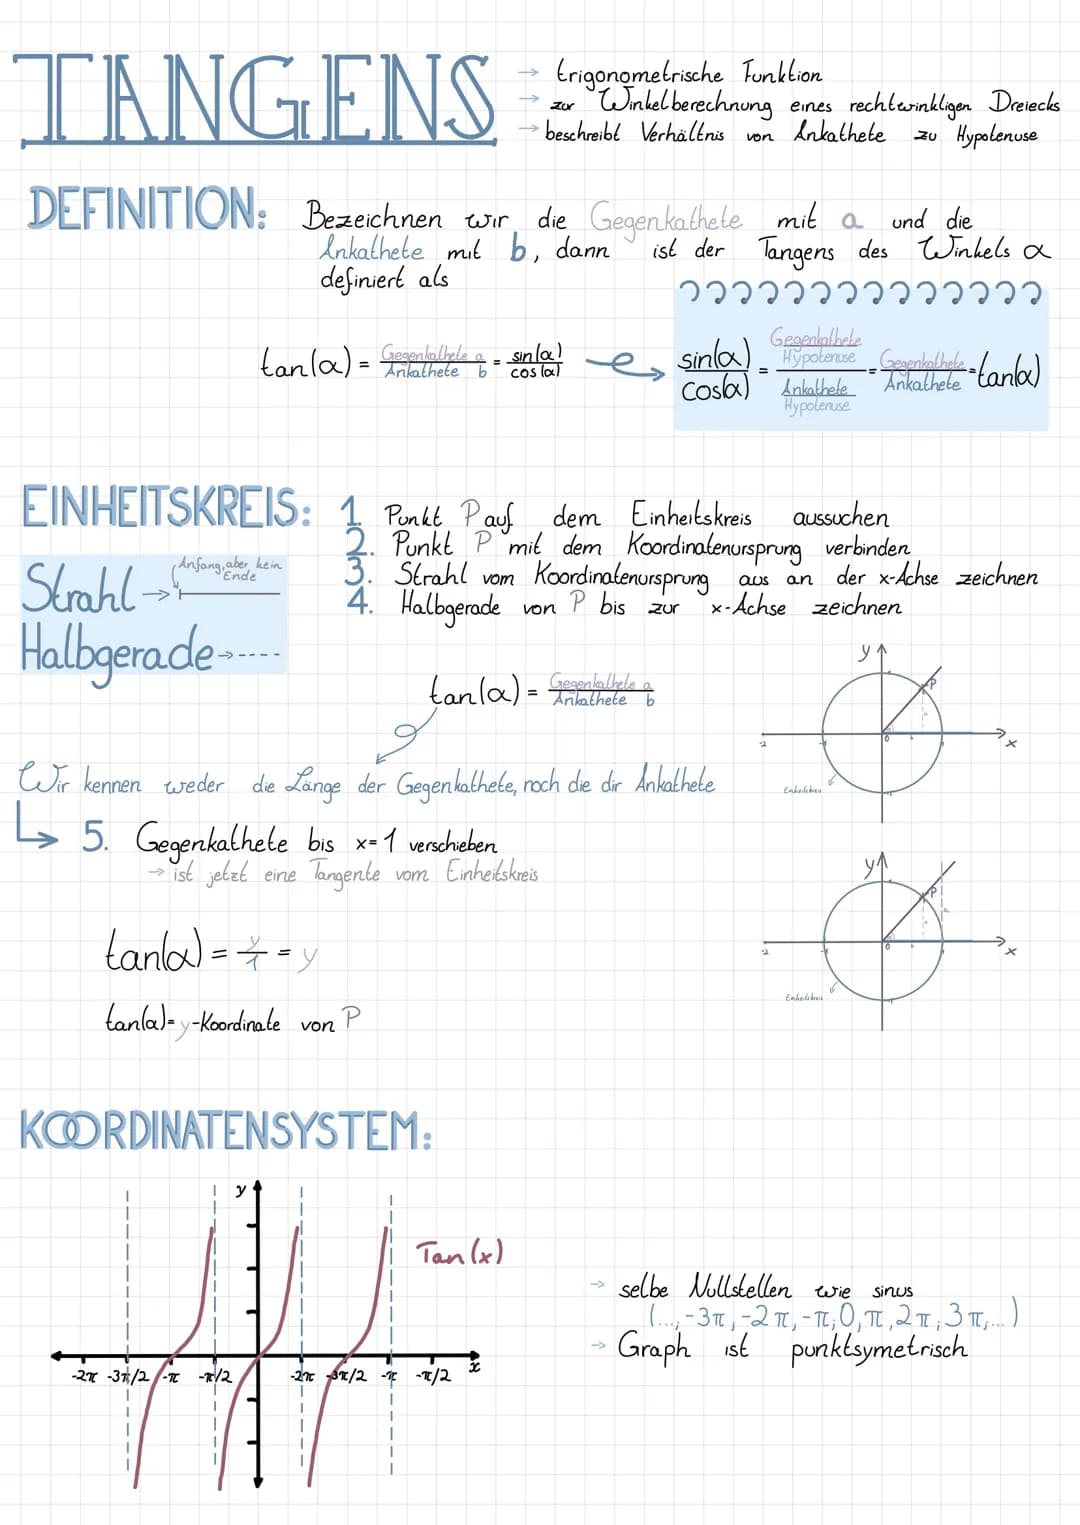 TANGENS
→ trigonometrische Funktion
→ zur Winkelberechnung eines rechtwinkligen Dreiecks
→ beschreibt Verhältnis von Ankathete zu Hypotenuse
DEFINITION: Bezeichnen wir die Gegenkathete mit a und die
Ankathete mit b, dann ist der Tangens des Winkels α
definiert als
tan(α) = Gegenkathete a / Ankathete b = sin(α) / cos(α)
sin(α) / cos(α) = Gegenkathete / Hypotenuse / Ankathete / Hypotenuse = Gegenkathete / Ankathete = tan(α)
EINHEITSKREIS:
1. Punkt P auf dem Einheitskreis aussuchen
2. Punkt P mit dem Koordinatenursprung verbinden
3. Strahl vom Koordinatenursprung aus an der x-Achse zeichnen
4. Halbgerade von P bis zur x-Achse zeichnen
Strahl →
Anfang, aber kein
Ende
Halbgerade → ----
tan(α) = Gegenkathete a / Ankathete b
y
P
-2 -1 0 1 x
Einheitskreis
Wir kennen weder die Länge der Gegenkathete, noch die dir Ankathete
↳ 5. Gegenkathete bis x=1 verschieben
→ ist jetzt eine Tangente vom Einheitskreis
y
P
-2 -1 0 1 x
Einheitskreis
tan(α) = y/1 = y
tan(α) = y-Koordinate von P
KOORDINATENSYSTEM:
y
Tan(x)
-2π -3π/2 -π -π/2 -2π -3π/2 -π -π/2 x
→ selbe Nullstellen wie sinus
(...,-3π,-2π,-π,0,π,2π,3π,...)
→ Graph ist punktsymetrisch